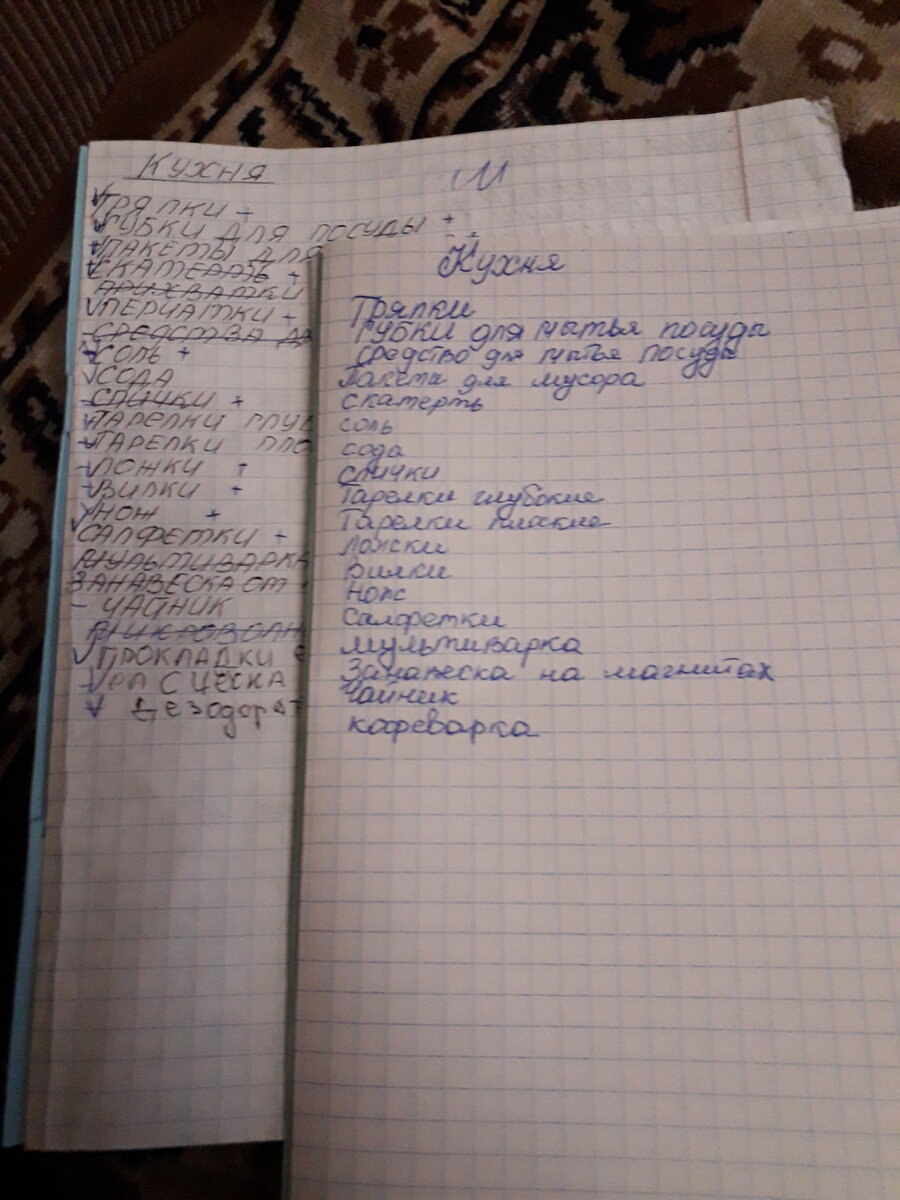 КУХНЯ
ТРЯПКИ +
ГУБКИ ДЛЯ ПОСУДЫ +
ПАКЕТЫ ДЛЯ
СКАТЕРАТЬ +
ПРИХВАТКИ
ПЕРЧАТКИ -
СРЕДСТВА ДЛ
СОЛЬ +
СОДА
СПИЧКИ +
ТАРЕЛКИ ГЛУБ
ТАРЕЛКИ ПЛО
ЛОЖКИ +
ВИЛКИ +
НОЖ +
САЛФЕТКИ +
МУЛЬТИВАРКА
ЗАНАВЕСКА ОТ
- ЧАЙНИК
МИКРОВОЛН
ПРОКЛАДКИ
РАСЧЕСКА
Дезодорат
Кухня
Тряпки
Губки для мытья посуды
средство для мытья посуды
Пакеты для мусора
скатерть
соль
сода
спички
Тарелки глубокие
Тарелки плоские
ложки
вилки
нож
салфетки
мультиварка
Занавеска на магнитах
Чайник
кофеварка